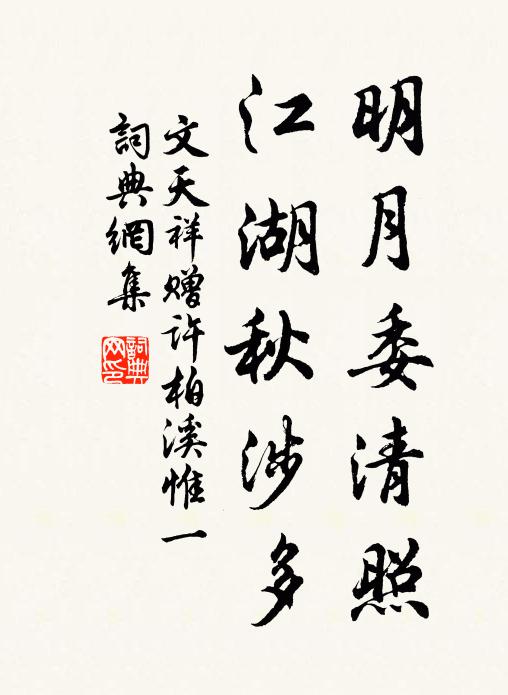 明月委清照
江湖秋涉多
文天祥赠许柏溪惟一
詞典網集
詞典
网印